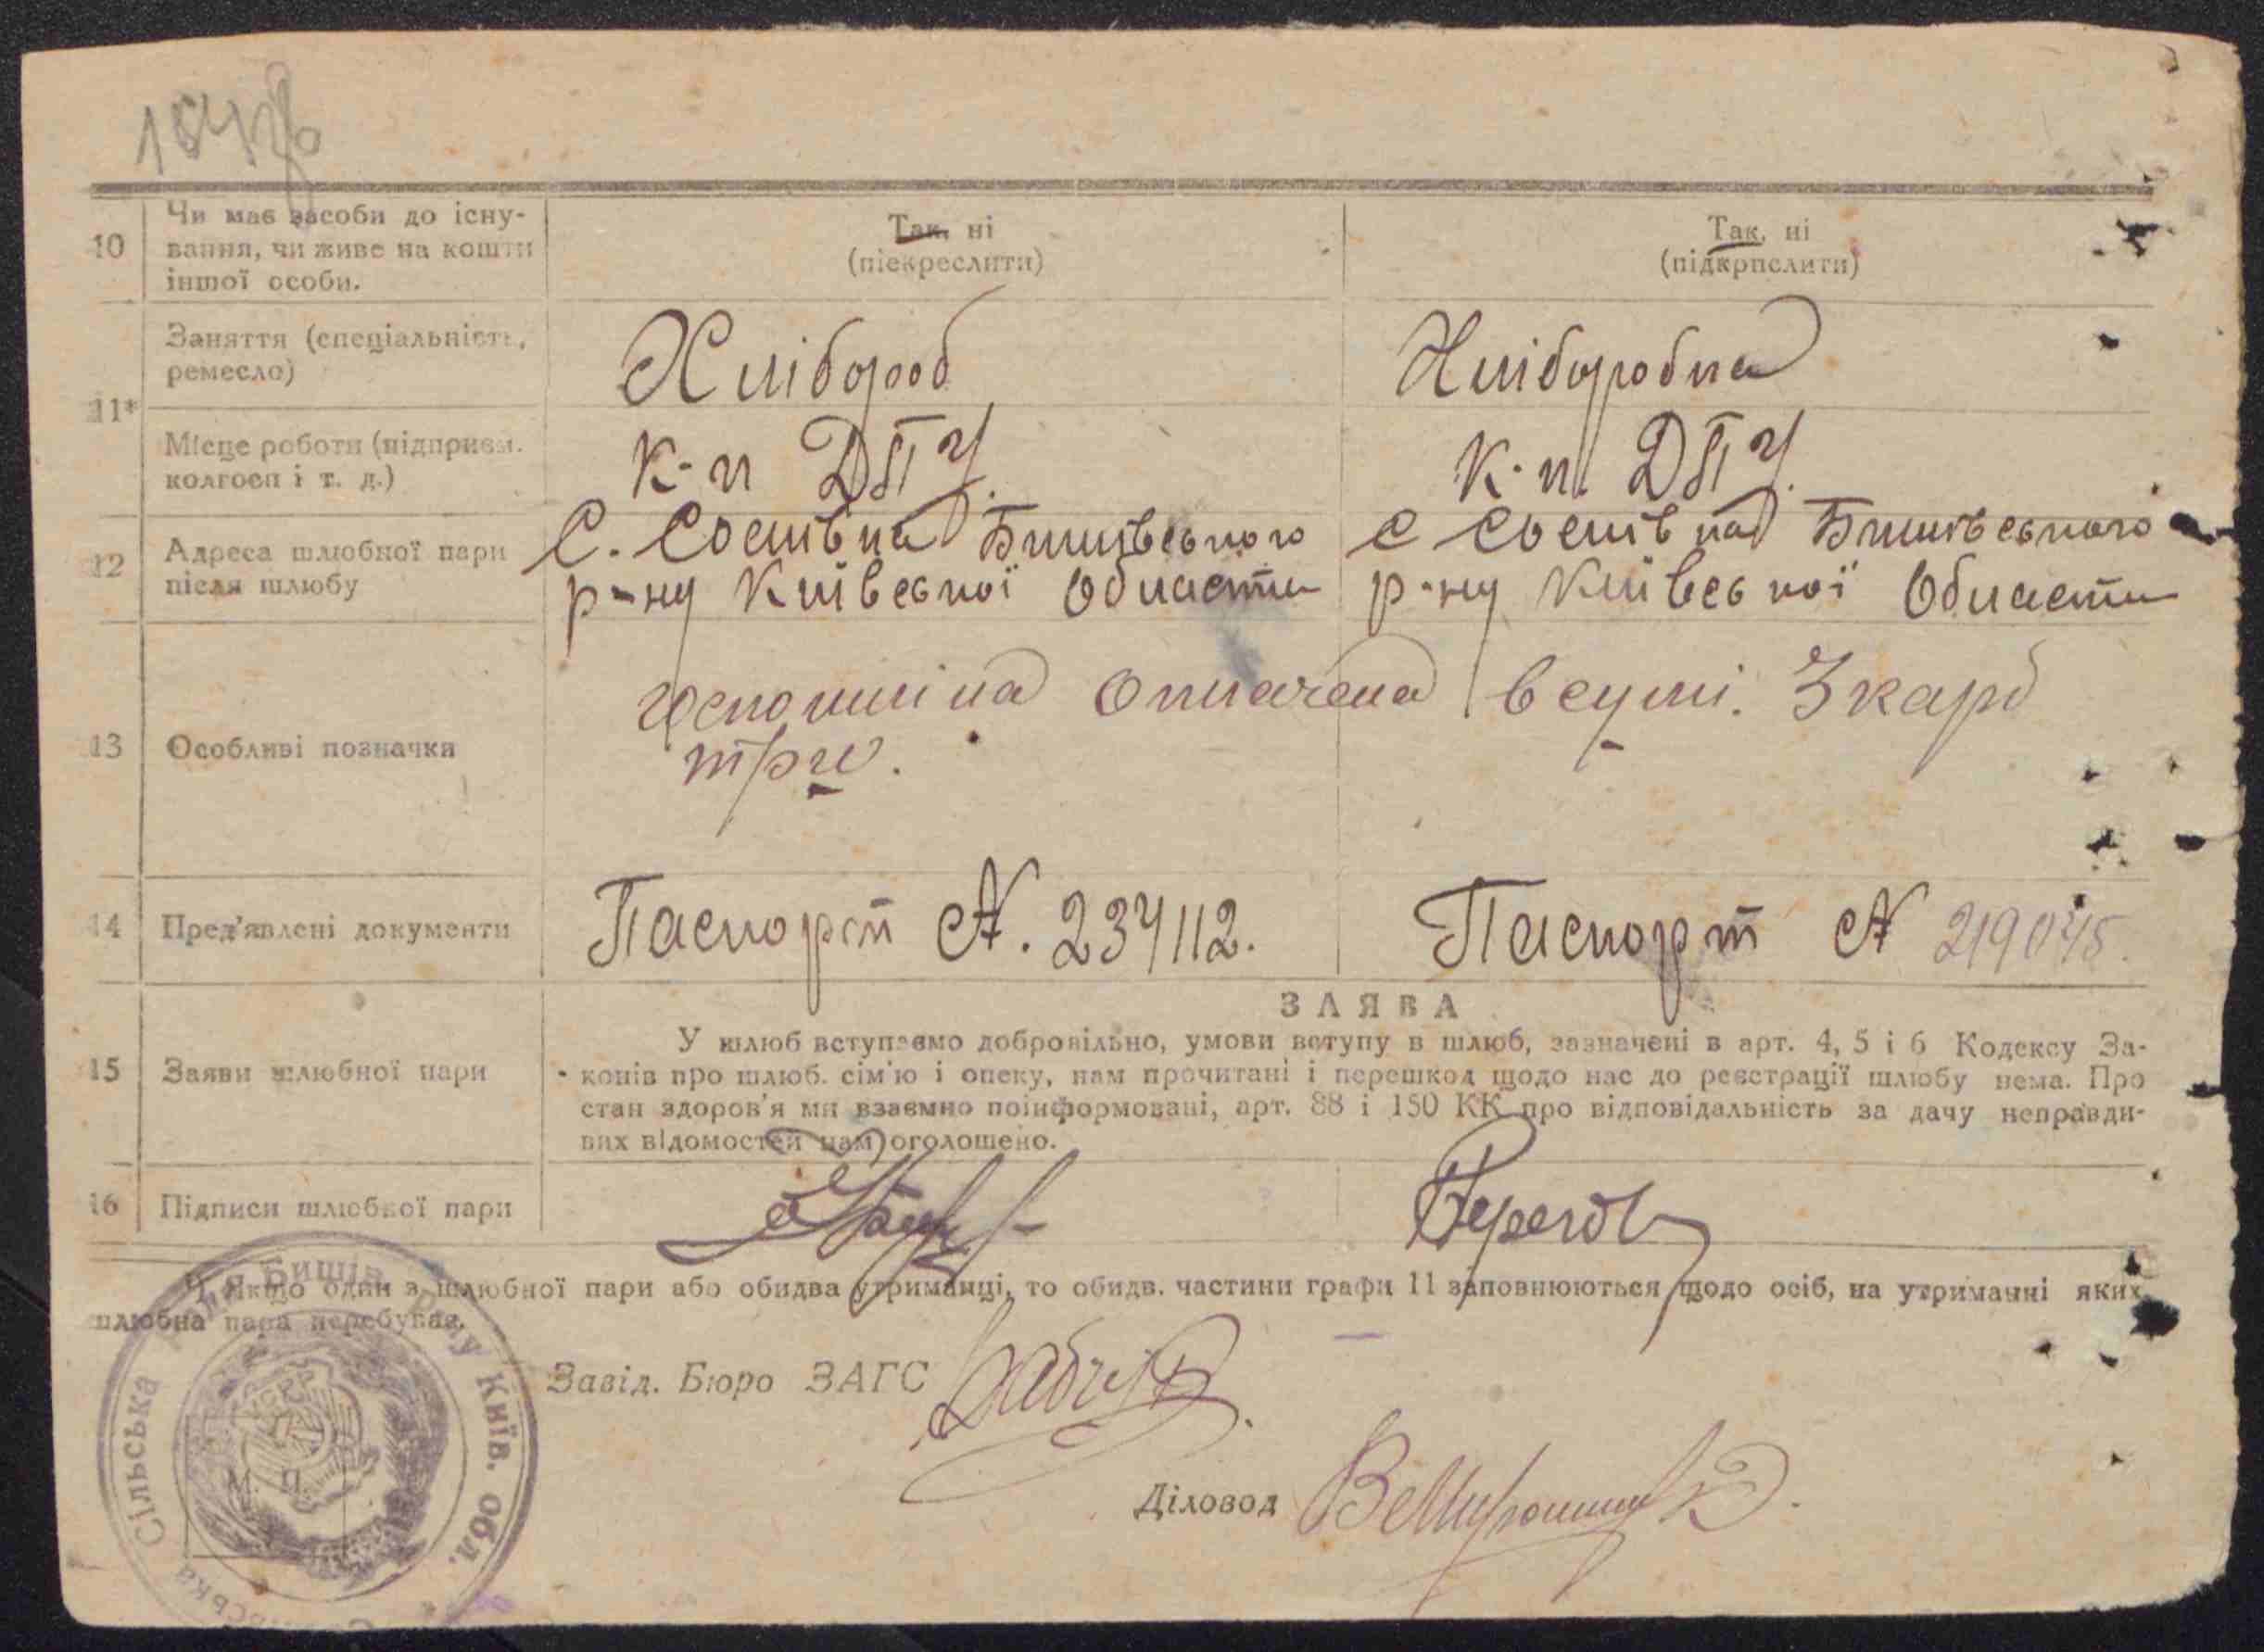 10 Чи має засоби до існу-
вання, чи живе на кошти
іншої особи.
Так, ні
(піекреслити)
Так, ні
(підкрпслити)
11*
Заняття (спеціальність,
ремесло)
Хлібороб
Хліборобка
Місце роботи (підприєм.
колгосп і т. д.)
к-п ДПУ
к-п. ДПУ.
12 Адреса шлюбної пари
після шлюбу
С. Соснівка Бишівського
р-ну Київської Области
с Соснівка Бишівського
р-ну Київської Области
13 Особливі позначки
оплачена в сумі. 3 карб
14 Пред'явлені документи
Паспорт №. 234112.
Паспорт № 219045.
ЗАЯВА
15 Заяви шлюбної пари
У шлюб вступаємо добровільно, умови вступу в шлюб, зазначені в арт. 4, 5 і 6 Кодексу За-
конів про шлюб. сім'ю і опеку, нам прочитані і перешкод щодо нас до реєстрації шлюбу нема. Про
стан здоров'я ми взаємно поінформовані, арт. 88 і 150 КК про відповідальність за дачу неправди-
вих відомостей нам оголошено.
16 Підписи шлюбної пари
*) Якщо один з шлюбної пари або обидва утриманці, то обидв. частини графи 11 заповнюються щодо осіб, на утриманні яких
шлюбна пара перебуває.
Завід. Бюро ЗАГС
Діловод
Сільська Рада Бишів. р-ну Київ. Обл.